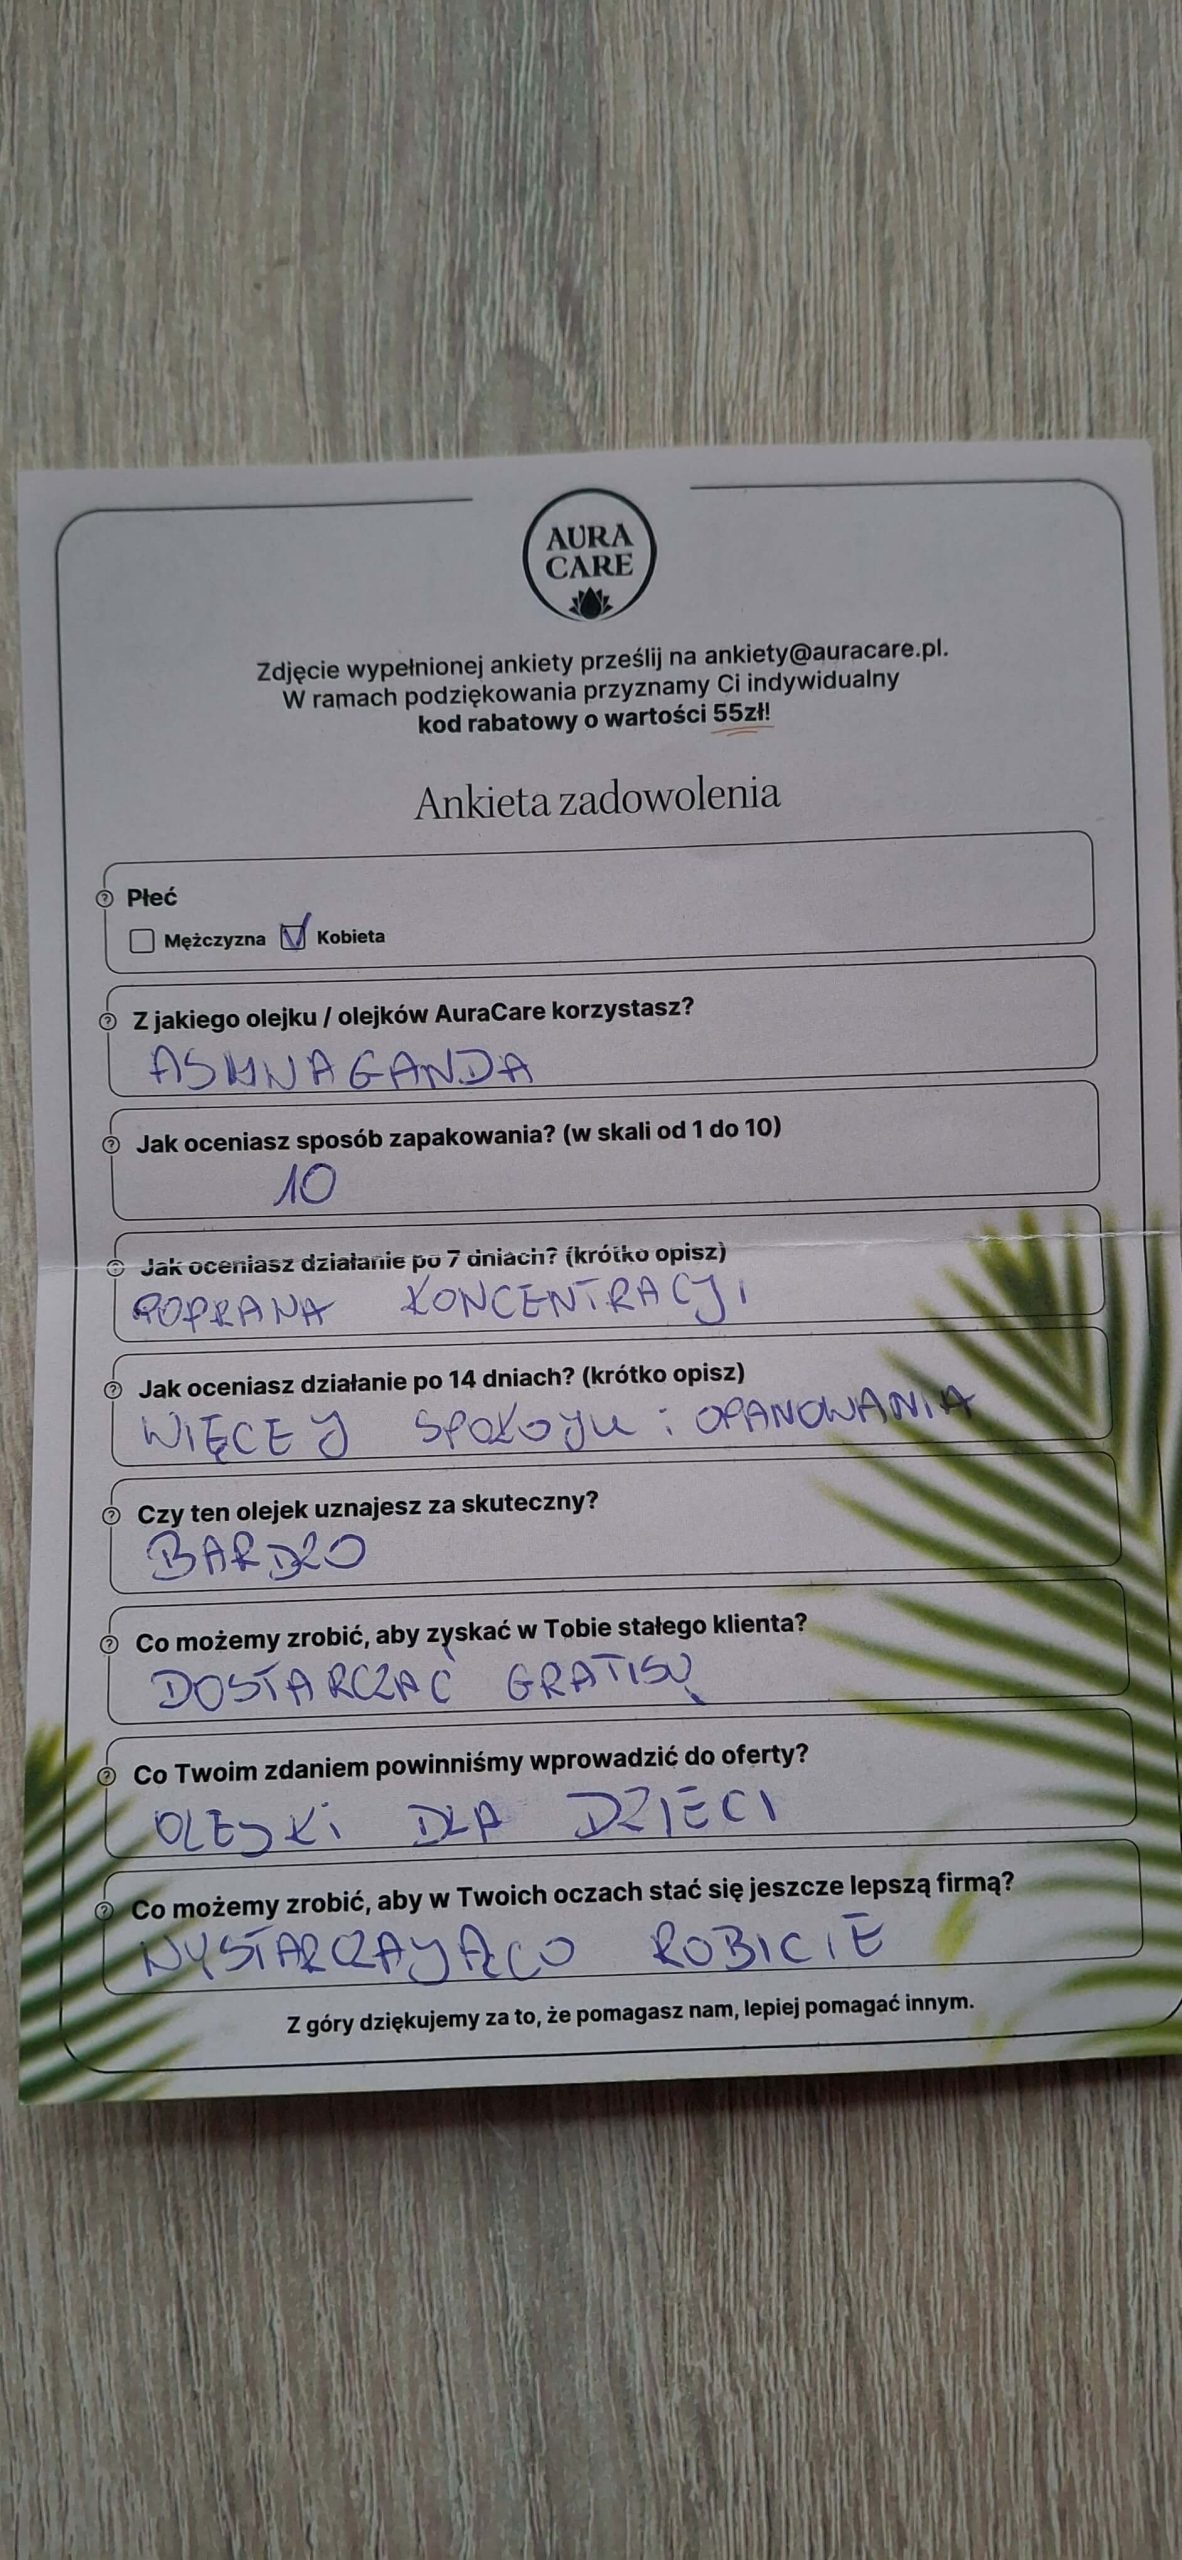 AURA
CARE
Zdjęcie wypełnionej ankiety prześlij na ankiety@auracare.pl.
W ramach podziękowania przyznamy Ci indywidualny
kod rabatowy o wartości 55zł!
Ankieta zadowolenia
Płeć
Mężczyzna Kobieta
Z jakiego olejku / olejków AuraCare korzystasz?
ASHWAGANDA
Jak oceniasz sposób zapakowania? (w skali od 1 do 10)
10
Jak oceniasz działanie po 7 dniach? (krótko opisz)
POPRAWA KONCENTRACJI
Jak oceniasz działanie po 14 dniach? (krótko opisz)
WIĘCEJ SPOKOJU i OPANOWANIA
Czy ten olejek uznajesz za skuteczny?
BARDZO
Co możemy zrobić, aby zyskać w Tobie stałego klienta?
DOSTARCZAĆ GRATISY
Co Twoim zdaniem powinniśmy wprowadzić do oferty?
OLEJKI DLA DZIECI
Co możemy zrobić, aby w Twoich oczach stać się jeszcze lepszą firmą?
WYSTARCZAJĄCO ROBICIE
Z góry dziękujemy za to, że pomagasz nam, lepiej pomagać innym.